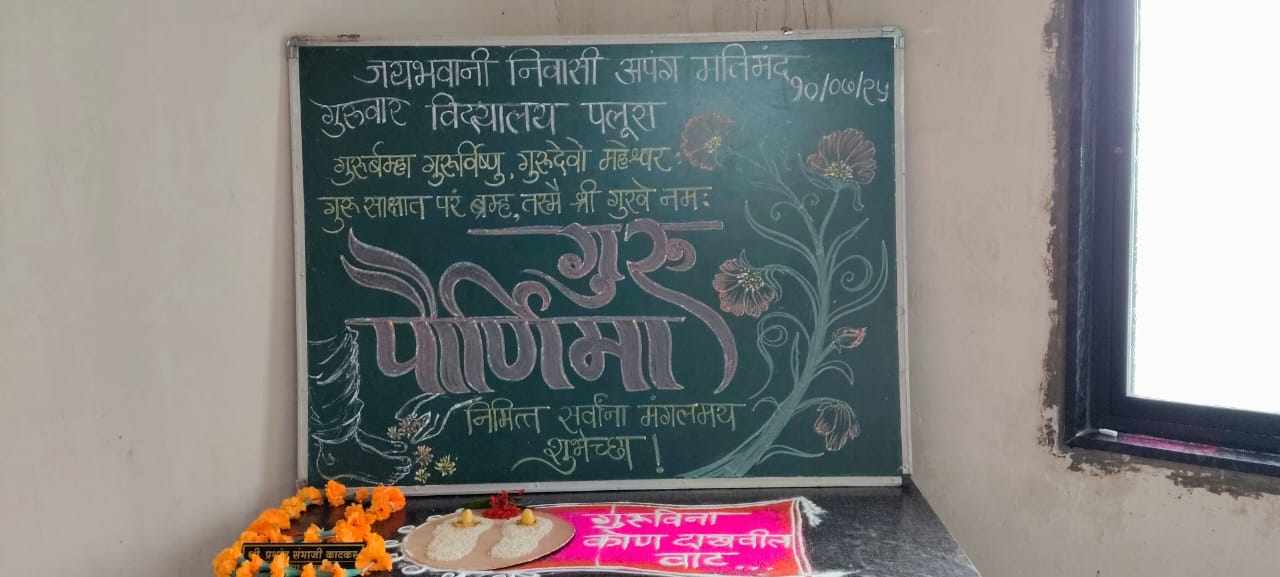 जयभवानी निवासी अपंग मतिमंद
१०/०७/२५
गुरूवार विद्यालय पलूस
गुरुर्बम्हा गुरूर्विष्णु, गुरूदेवो महेश्वर:
गुरू साक्षात परं ब्रम्ह, तस्मै श्री गुरवे नम:
गुरू
पौर्णिमा
निमित्त सर्वांना मंगलमय
शुभेच्छा !
गुरूविना
कोण दाखवील
वाट...
श्री. संभाजी काटकर